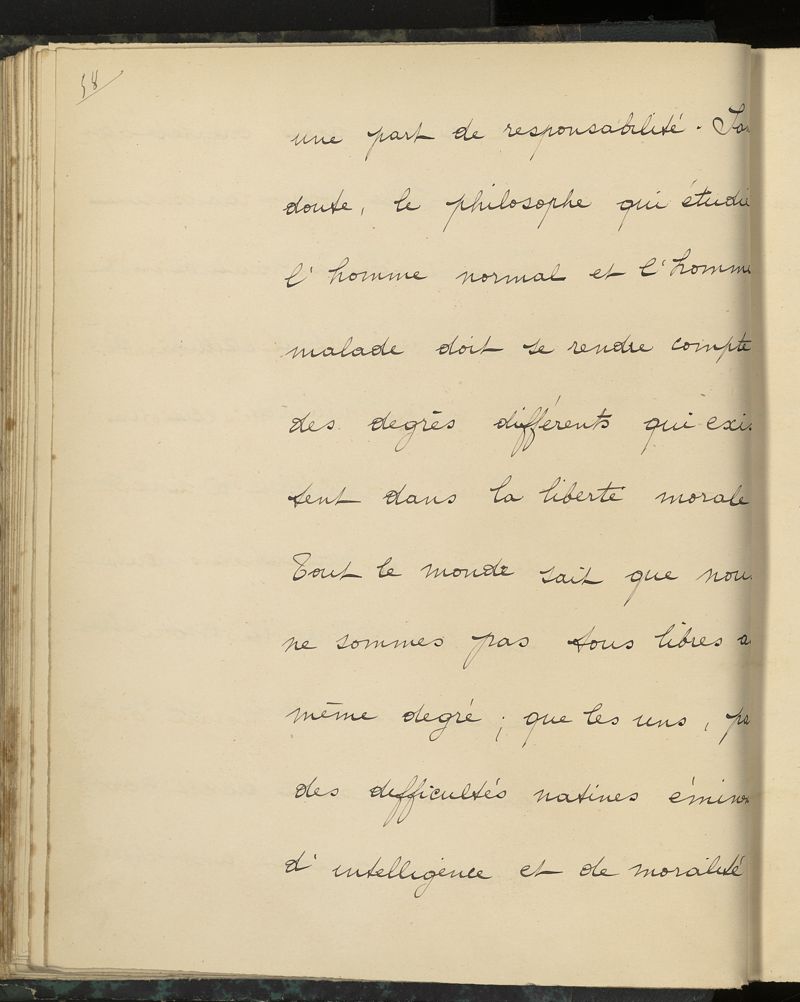 58
une part de responsabilité.
doute, le philosophe qui étudie
l'homme normal et l'homme
malade doit se rendre compte
des degrès différents qui exis
tent dans la liberté morale
Tout le monde sait que nous
ne sommes pas tous libres a
même degré ; que les uns, pa
des difficultés natives
d'intelligence et de moralité